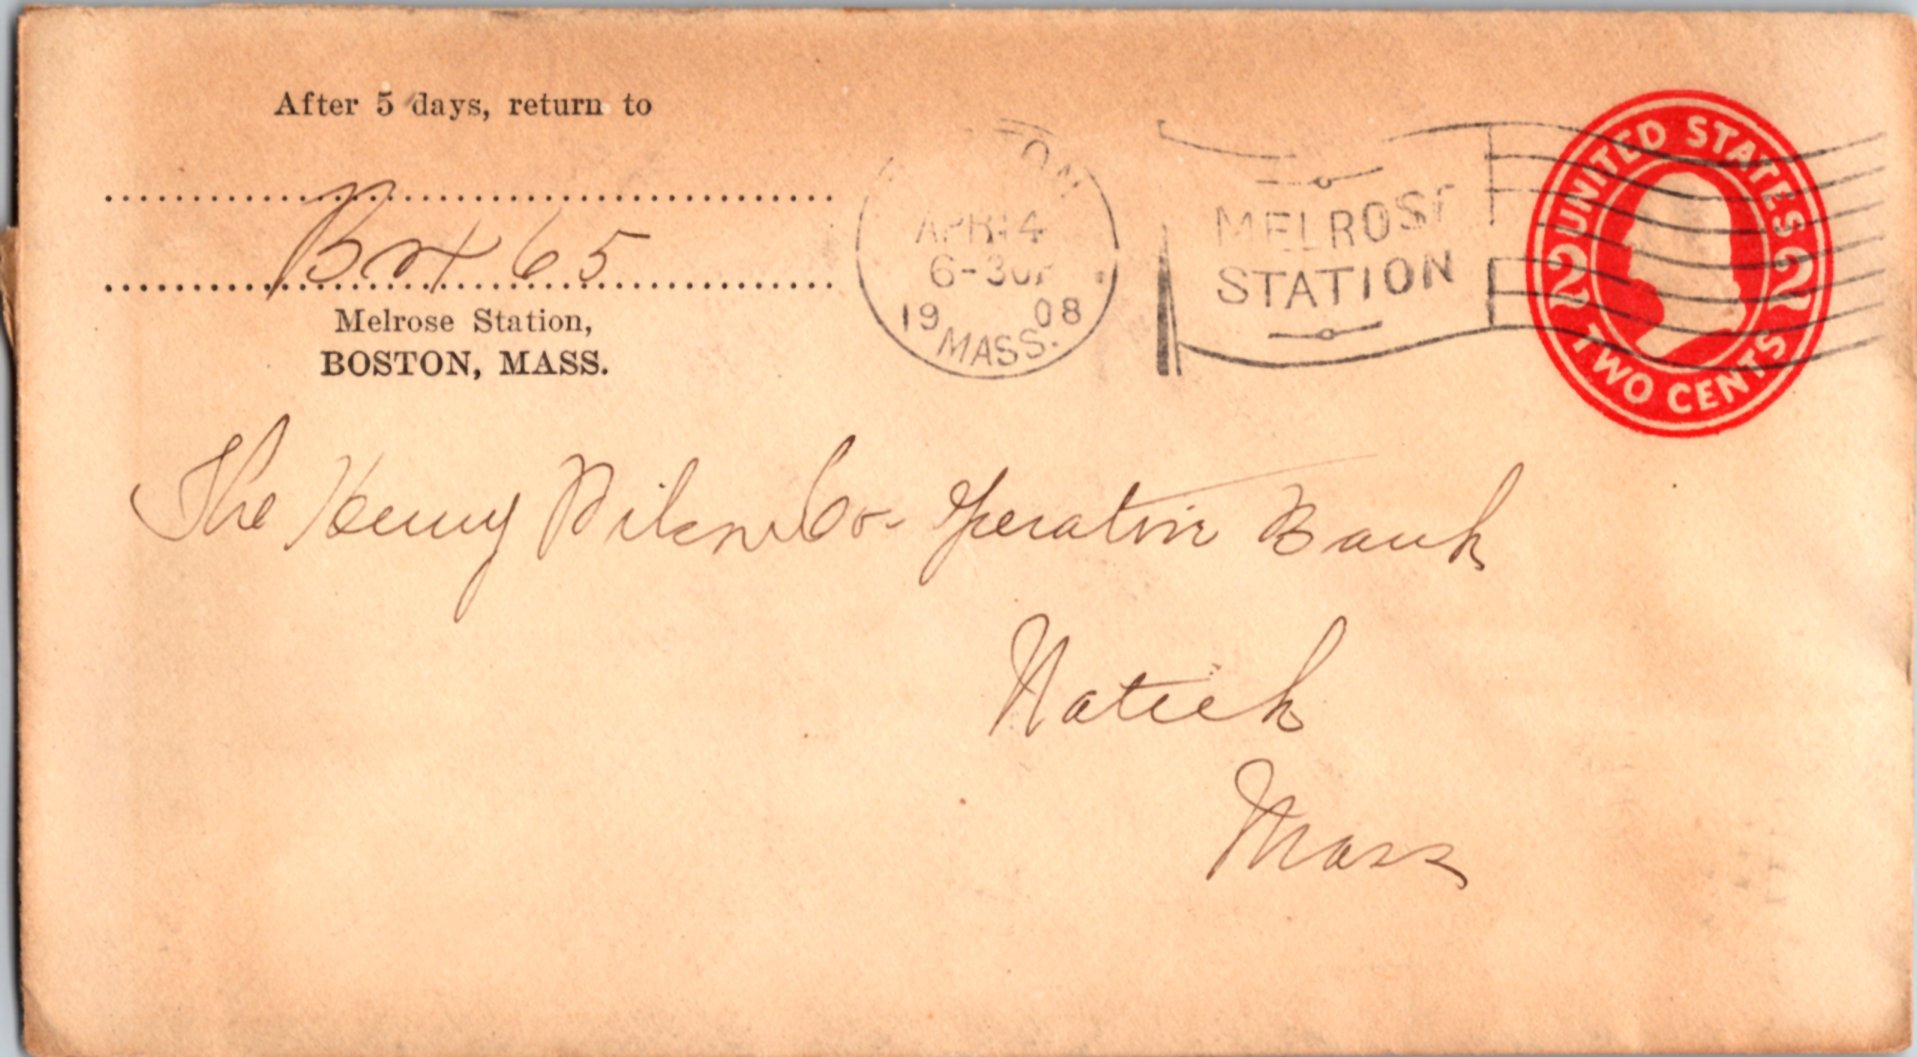 After 5 days, return to
Box 65
Melrose Station,
BOSTON, MASS.
TON
APR 14
6-30P
19 08
MASS.
MELROSE
STATION
UNITED STATES
2 2
TWO CENTS
The Henry Wilson Co-operative Bank
Natick
Mass